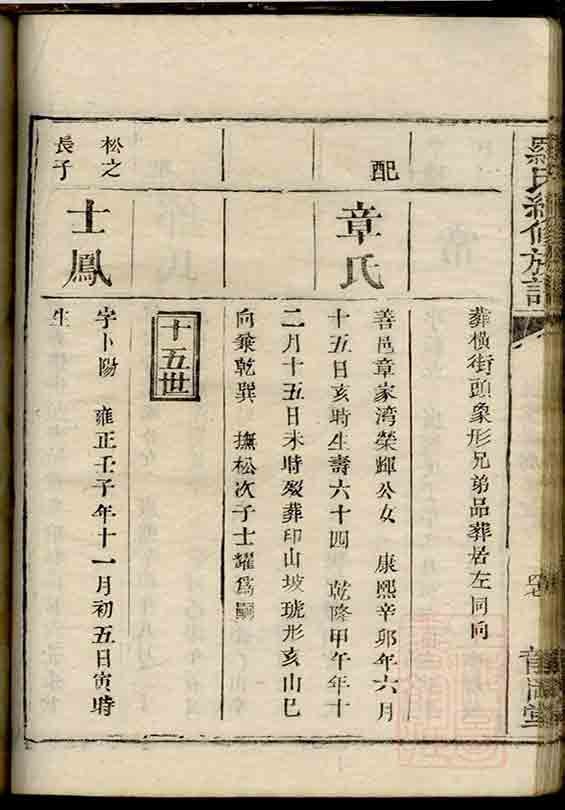 羅氏續修族譜
葬橫街頭象形兄弟品葬居左同向
配
章氏
善邑章家湾榮輝公女 康熙辛卯年六月
十五日亥時生壽六十四 乾隆甲午年十
二月十五日未時歿葬印山坡琥形亥山巳
向兼乾巽 撫松次子士耀爲嗣
十五世
松之
長子
士鳳
字卜陽 雍正壬子年十一月初五日寅時
生